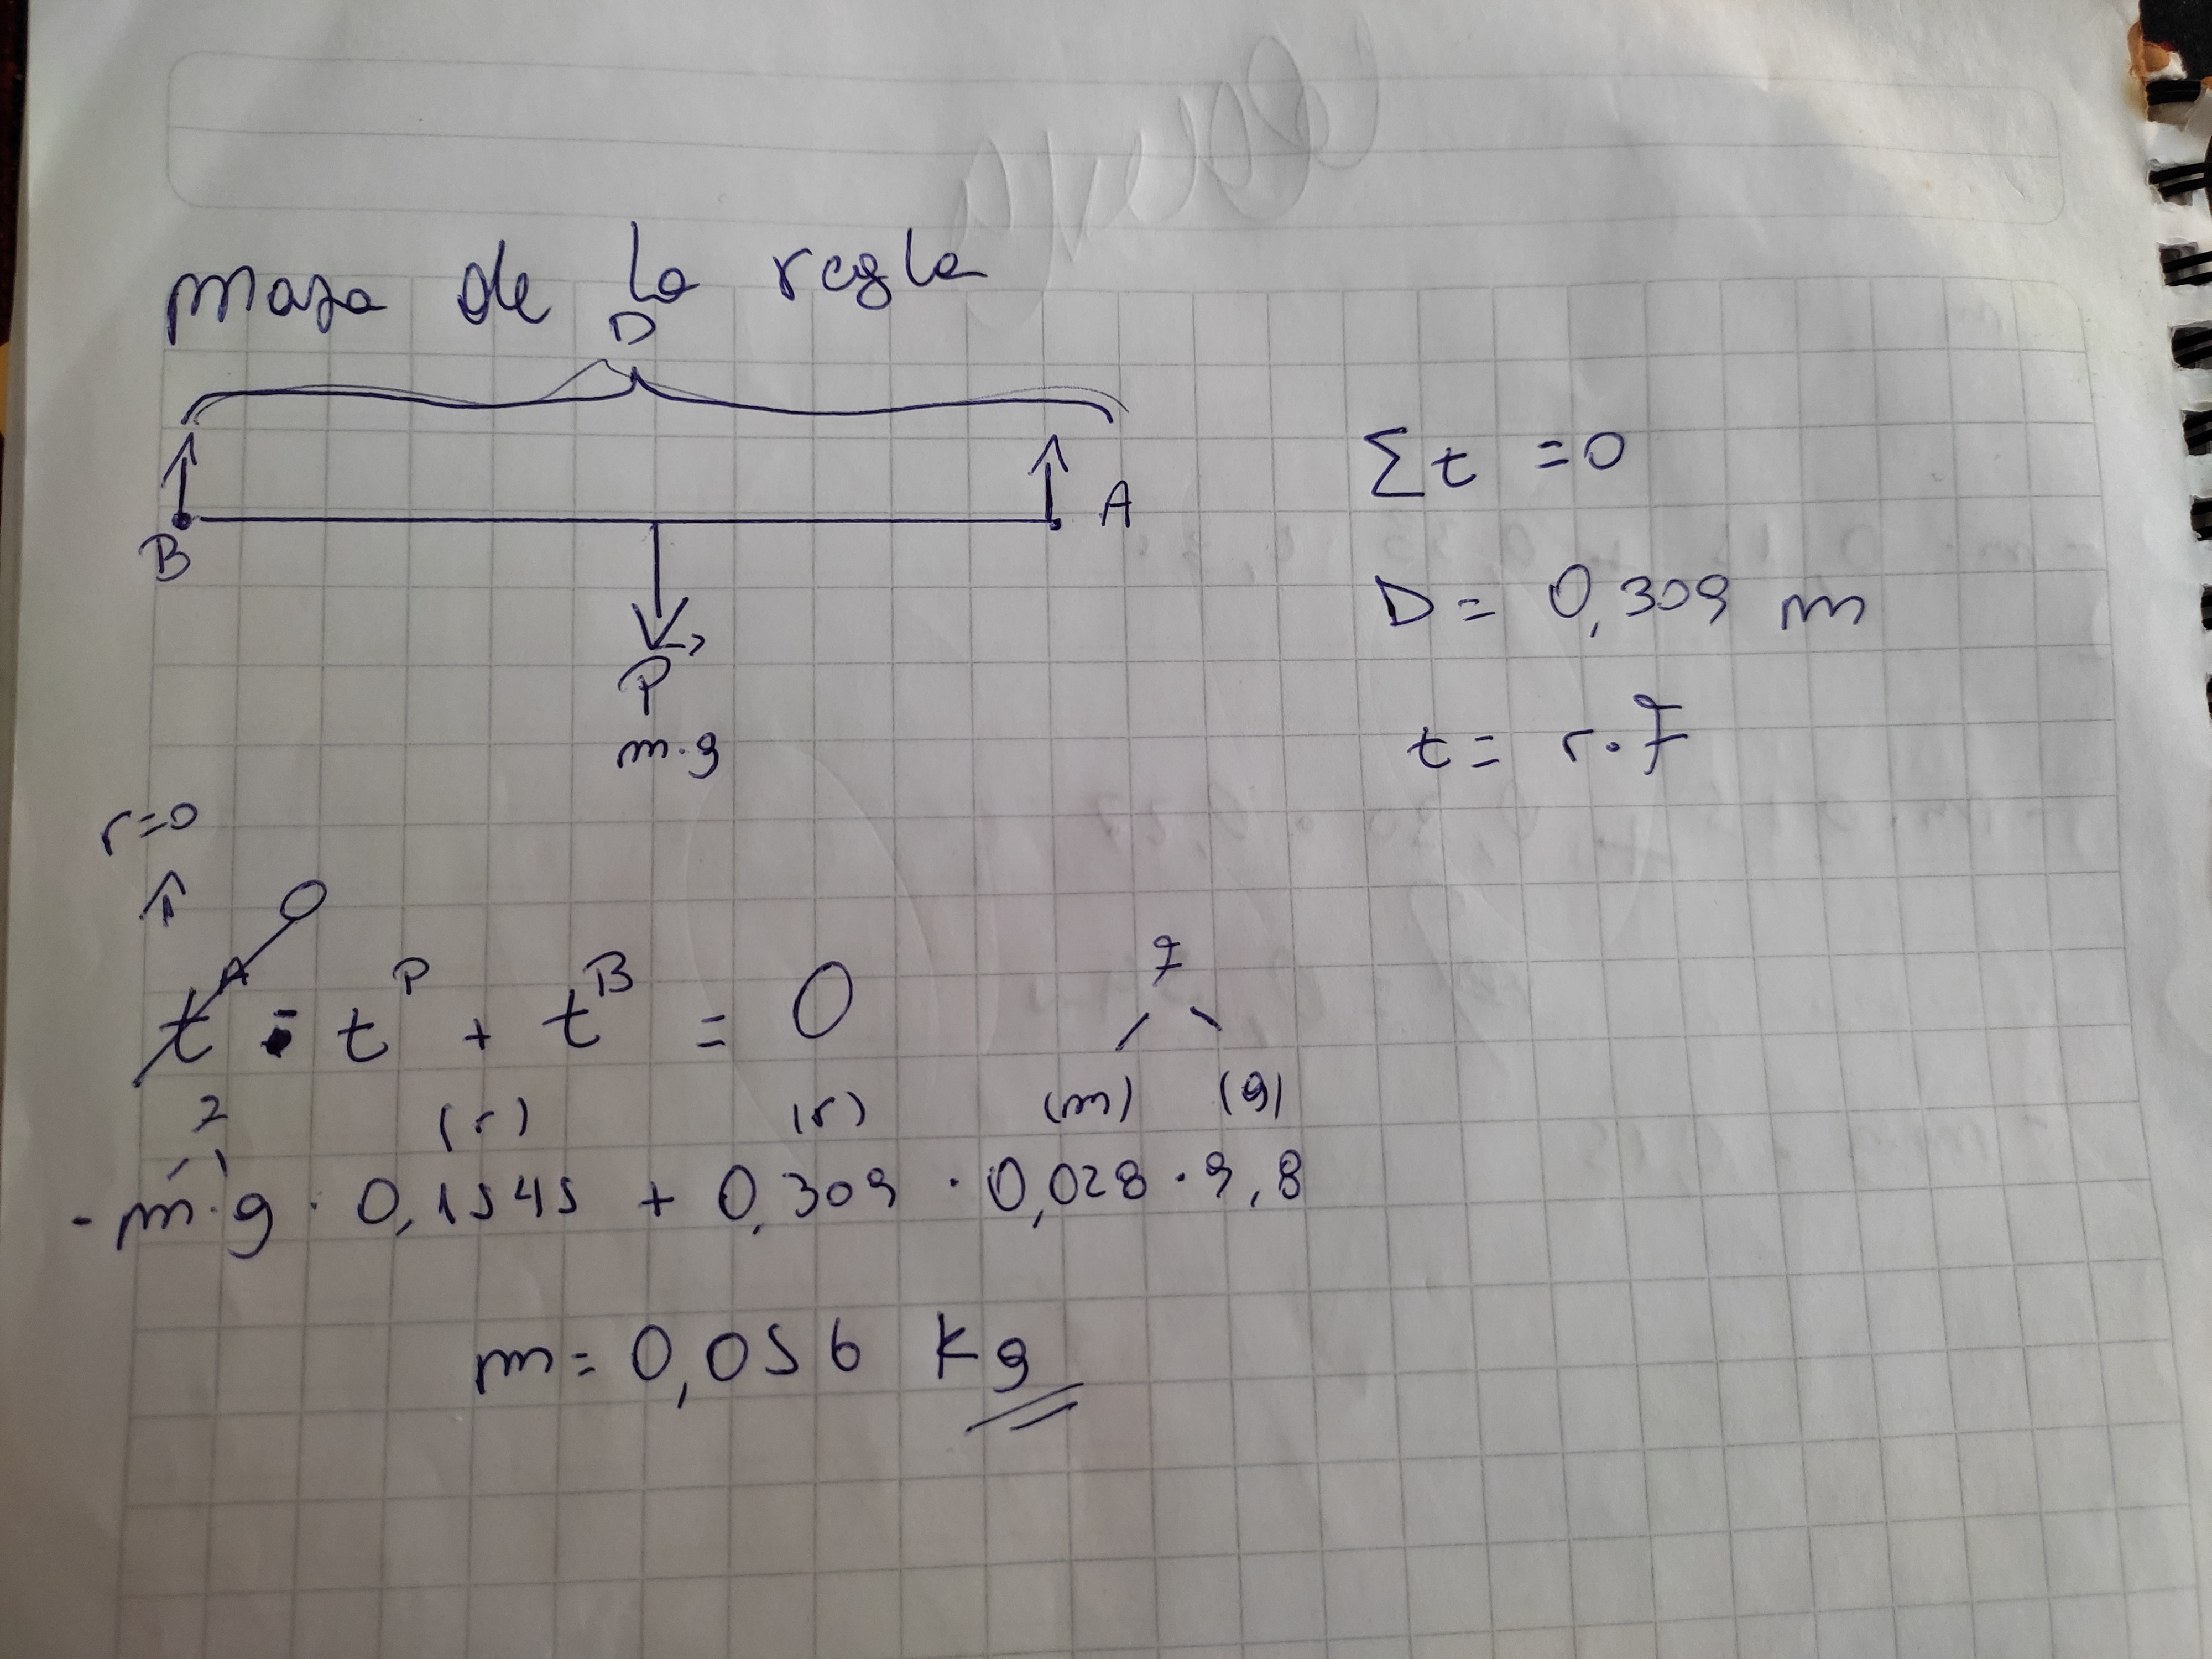 masa de la regla
D
B
A
P
m.g
Σt =0
D= 0,309 m
t= r.F
r=0
0
t^A - t^P + t^B = 0
F
F (r) (r) (m) (g)
-m.g . 0,1545 + 0,309 . 0,028 . 9,8
m= 0,056 Kg